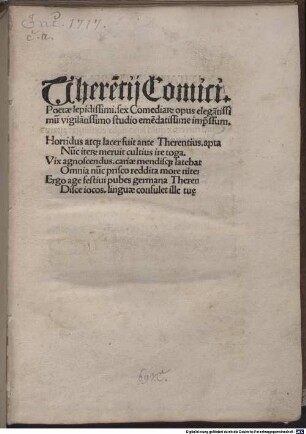 Therētij Comici.
Poetæ lepidissimi. sex Comediarꝭ opus elegātissi
mū vigilātissimo studio emēdatissime imp̄ssum.
Horridus atq; lacer fuit ante Therentius. apta
Nūc itere meruit cultius ire toga.
Vix agnoscendus. cariæ mendisq; latebat
Omnia nūc prisco reddita more nitēt
Ergo age festiui pubes germana Theren
Disce iocos. linguæ consulet ille tuę